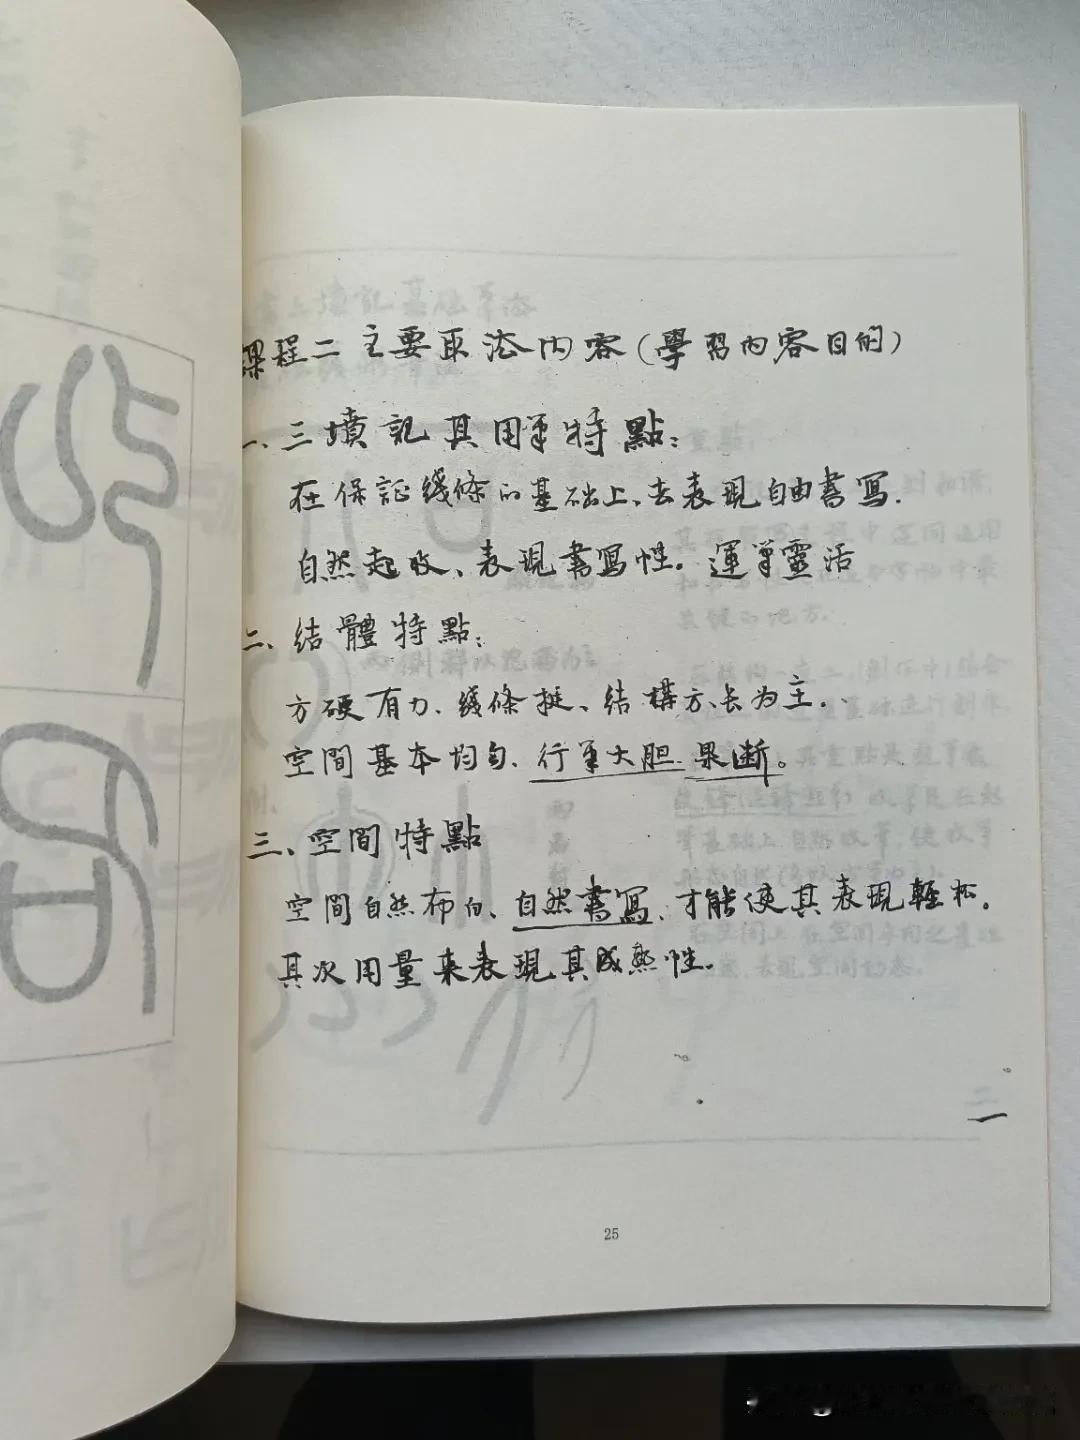 課程二 主要取法内容(學習内容目的)
一、三墳記其用笔特點:
在保証綫條的基础上、去表現自由書寫.
自然起收、表現書寫性。運笔靈活
二、结體特點:
方硬有力、綫條挺、结構方、长为主.
空間基本均匀、行笔大胆、果断。
三、空間特點
空間自然布白、自然書寫、才能使其表現輕松.
其次用量来表現其成熟性.
25